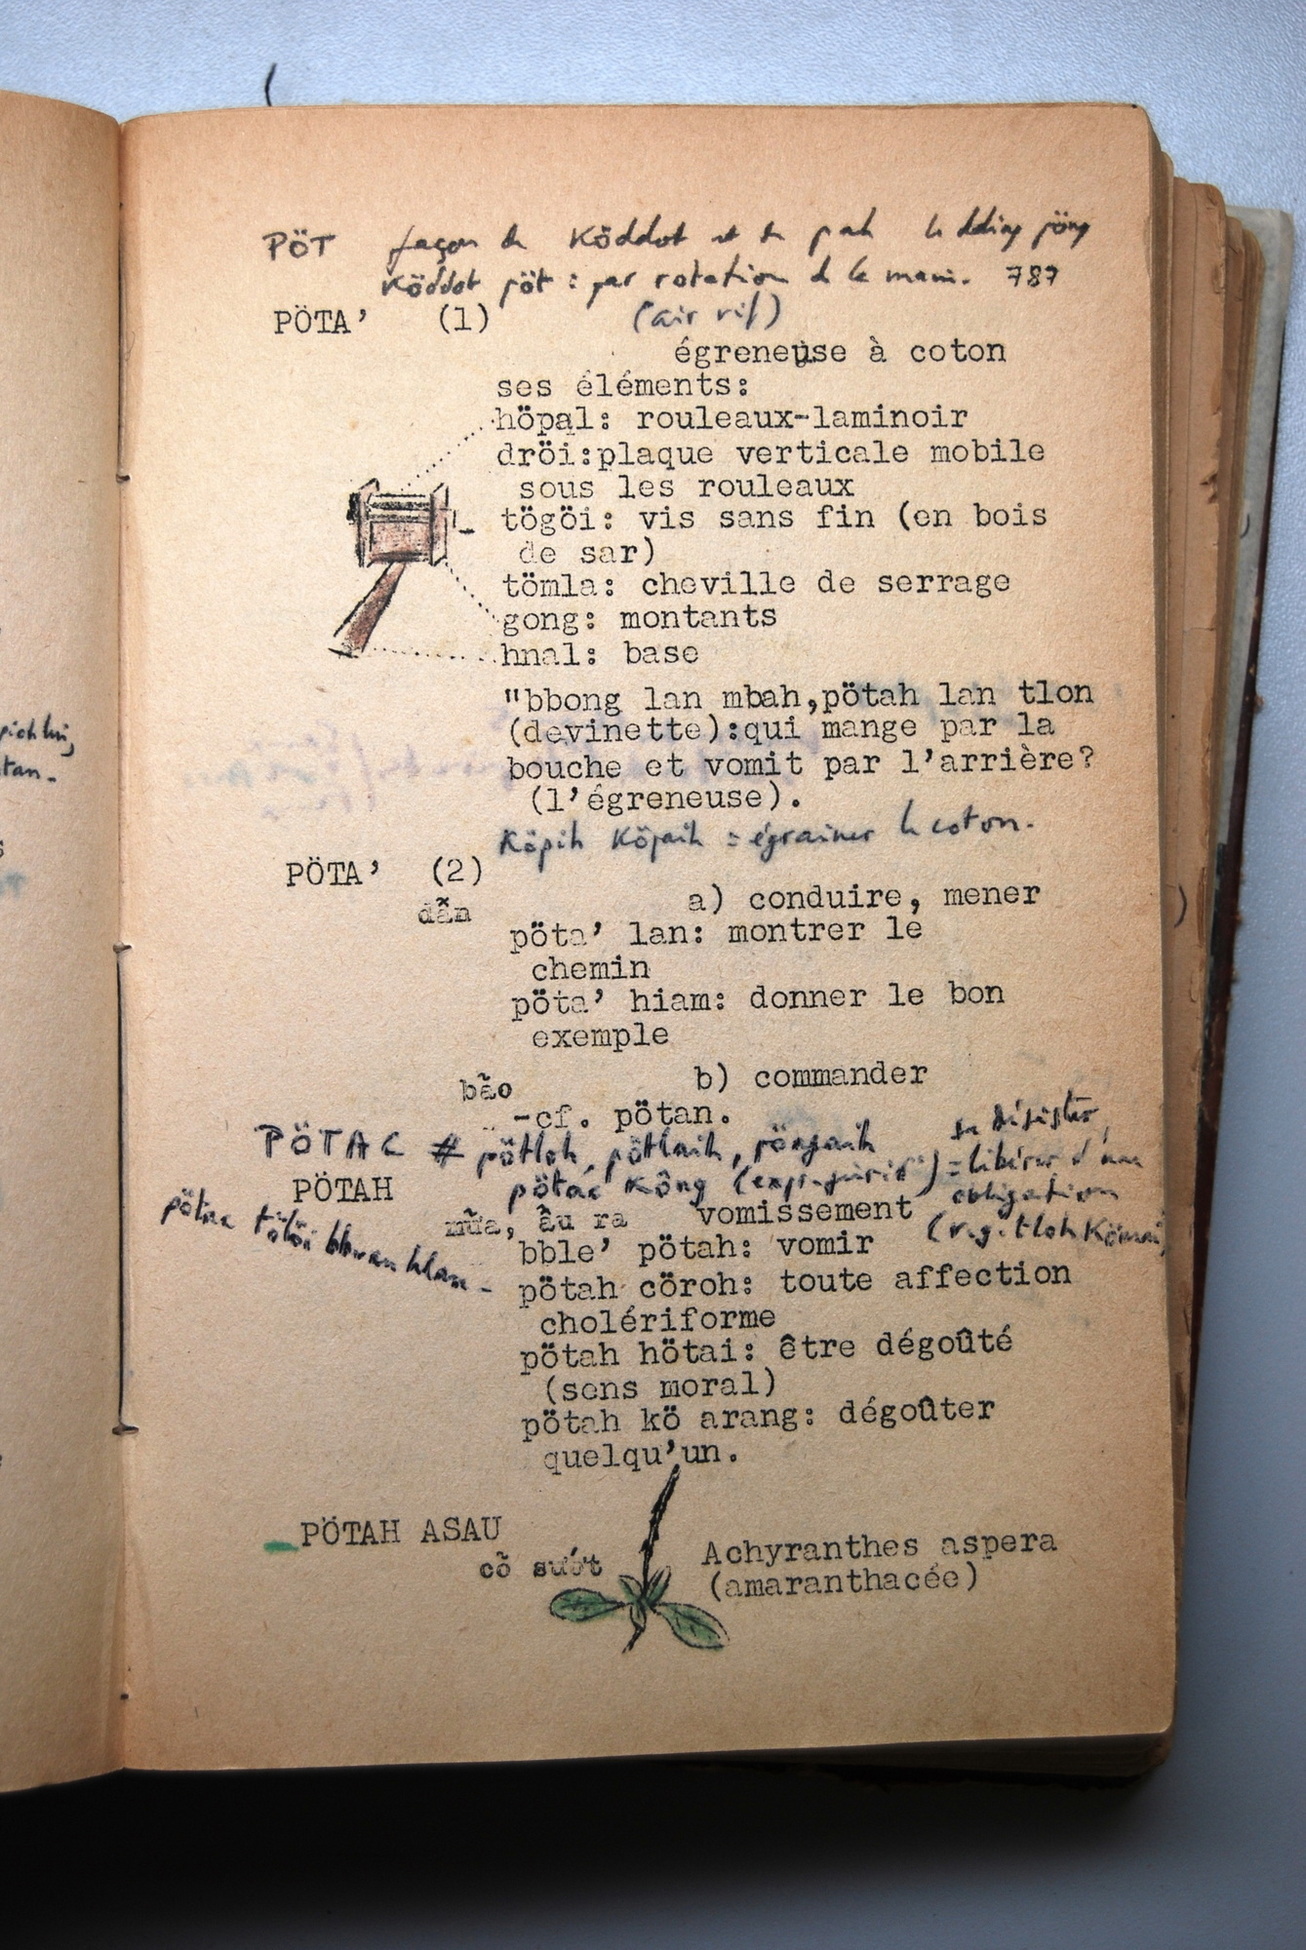 PÖT façon de Köddot et de pah le ding pöng
Köddot pöt : par rotation de la main. 787
(air vif)
PÖTA’ (1)
égreneuse à coton
ses éléments:
höpal: rouleaux-laminoir
dröi:plaque verticale mobile
sous les rouleaux
tögöi: vis sans fin (en bois
de sar)
tömla: cheville de serrage
gong: montants
hnal: base
"bbong lan mbah,pötah lan tlon
(devinette):qui mange par la
bouche et vomit par l’arrière?
(l’égreneuse).
Köpih Köpaih = égrainer le coton.
PÖTA’ (2)
dẫn
a) conduire, mener
pöta’ lan: montrer le
chemin
pöta’ hiam: donner le bon
exemple
b) commander
bão
-cf. pötan.
PÖTAC # pötloh, pötlaih,
se désister,
pötac Kông = libérer d'une
obligation
PÖTAH
mữa, ẩu ra vomissement
pötac
bble’ pötah: vomir
pötah cöroh: toute affection
cholériforme
pötah hötai: être dégoûté
(sens moral)
pötah kö arang: dégoûter
quelqu’un.
PÖTAH ASAU
cỏ suớt
Achyranthes aspera
(amaranthacée)